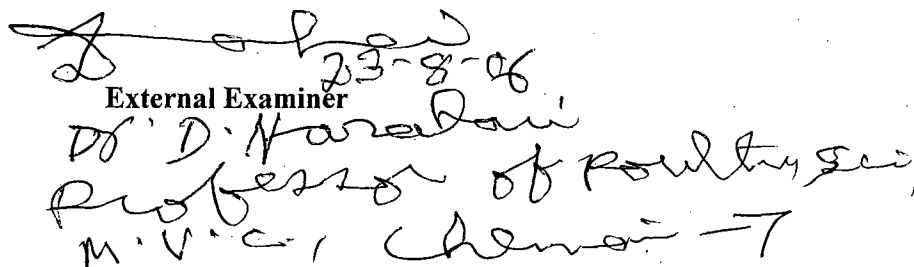 23-8-06
External Examiner
Dr. D. Narahari
Professor of Poultry Sci,
M.V.C., Chennai-7